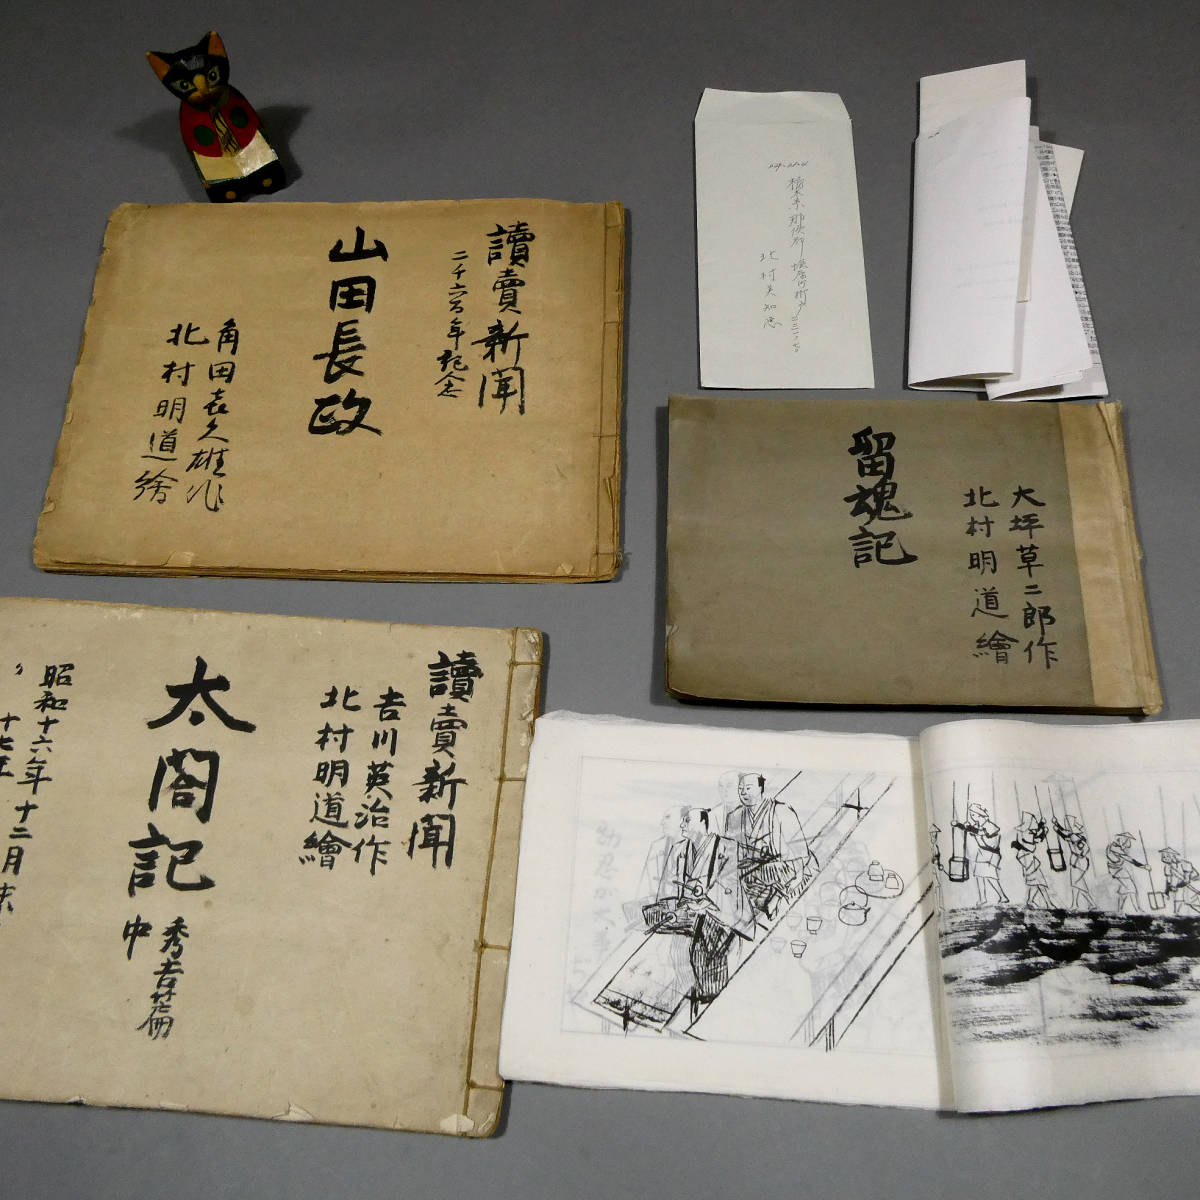 讀賣新聞
二千六百年記念
山田長政
角田喜久雄作
北村明道繪
北村美知恵
留魂記
大坪草二郎作
北村明道繪
讀賣新聞
吉川英治作
北村明道繪
太閤記
秀吉篇
中
昭和十六年十二月末
十七年